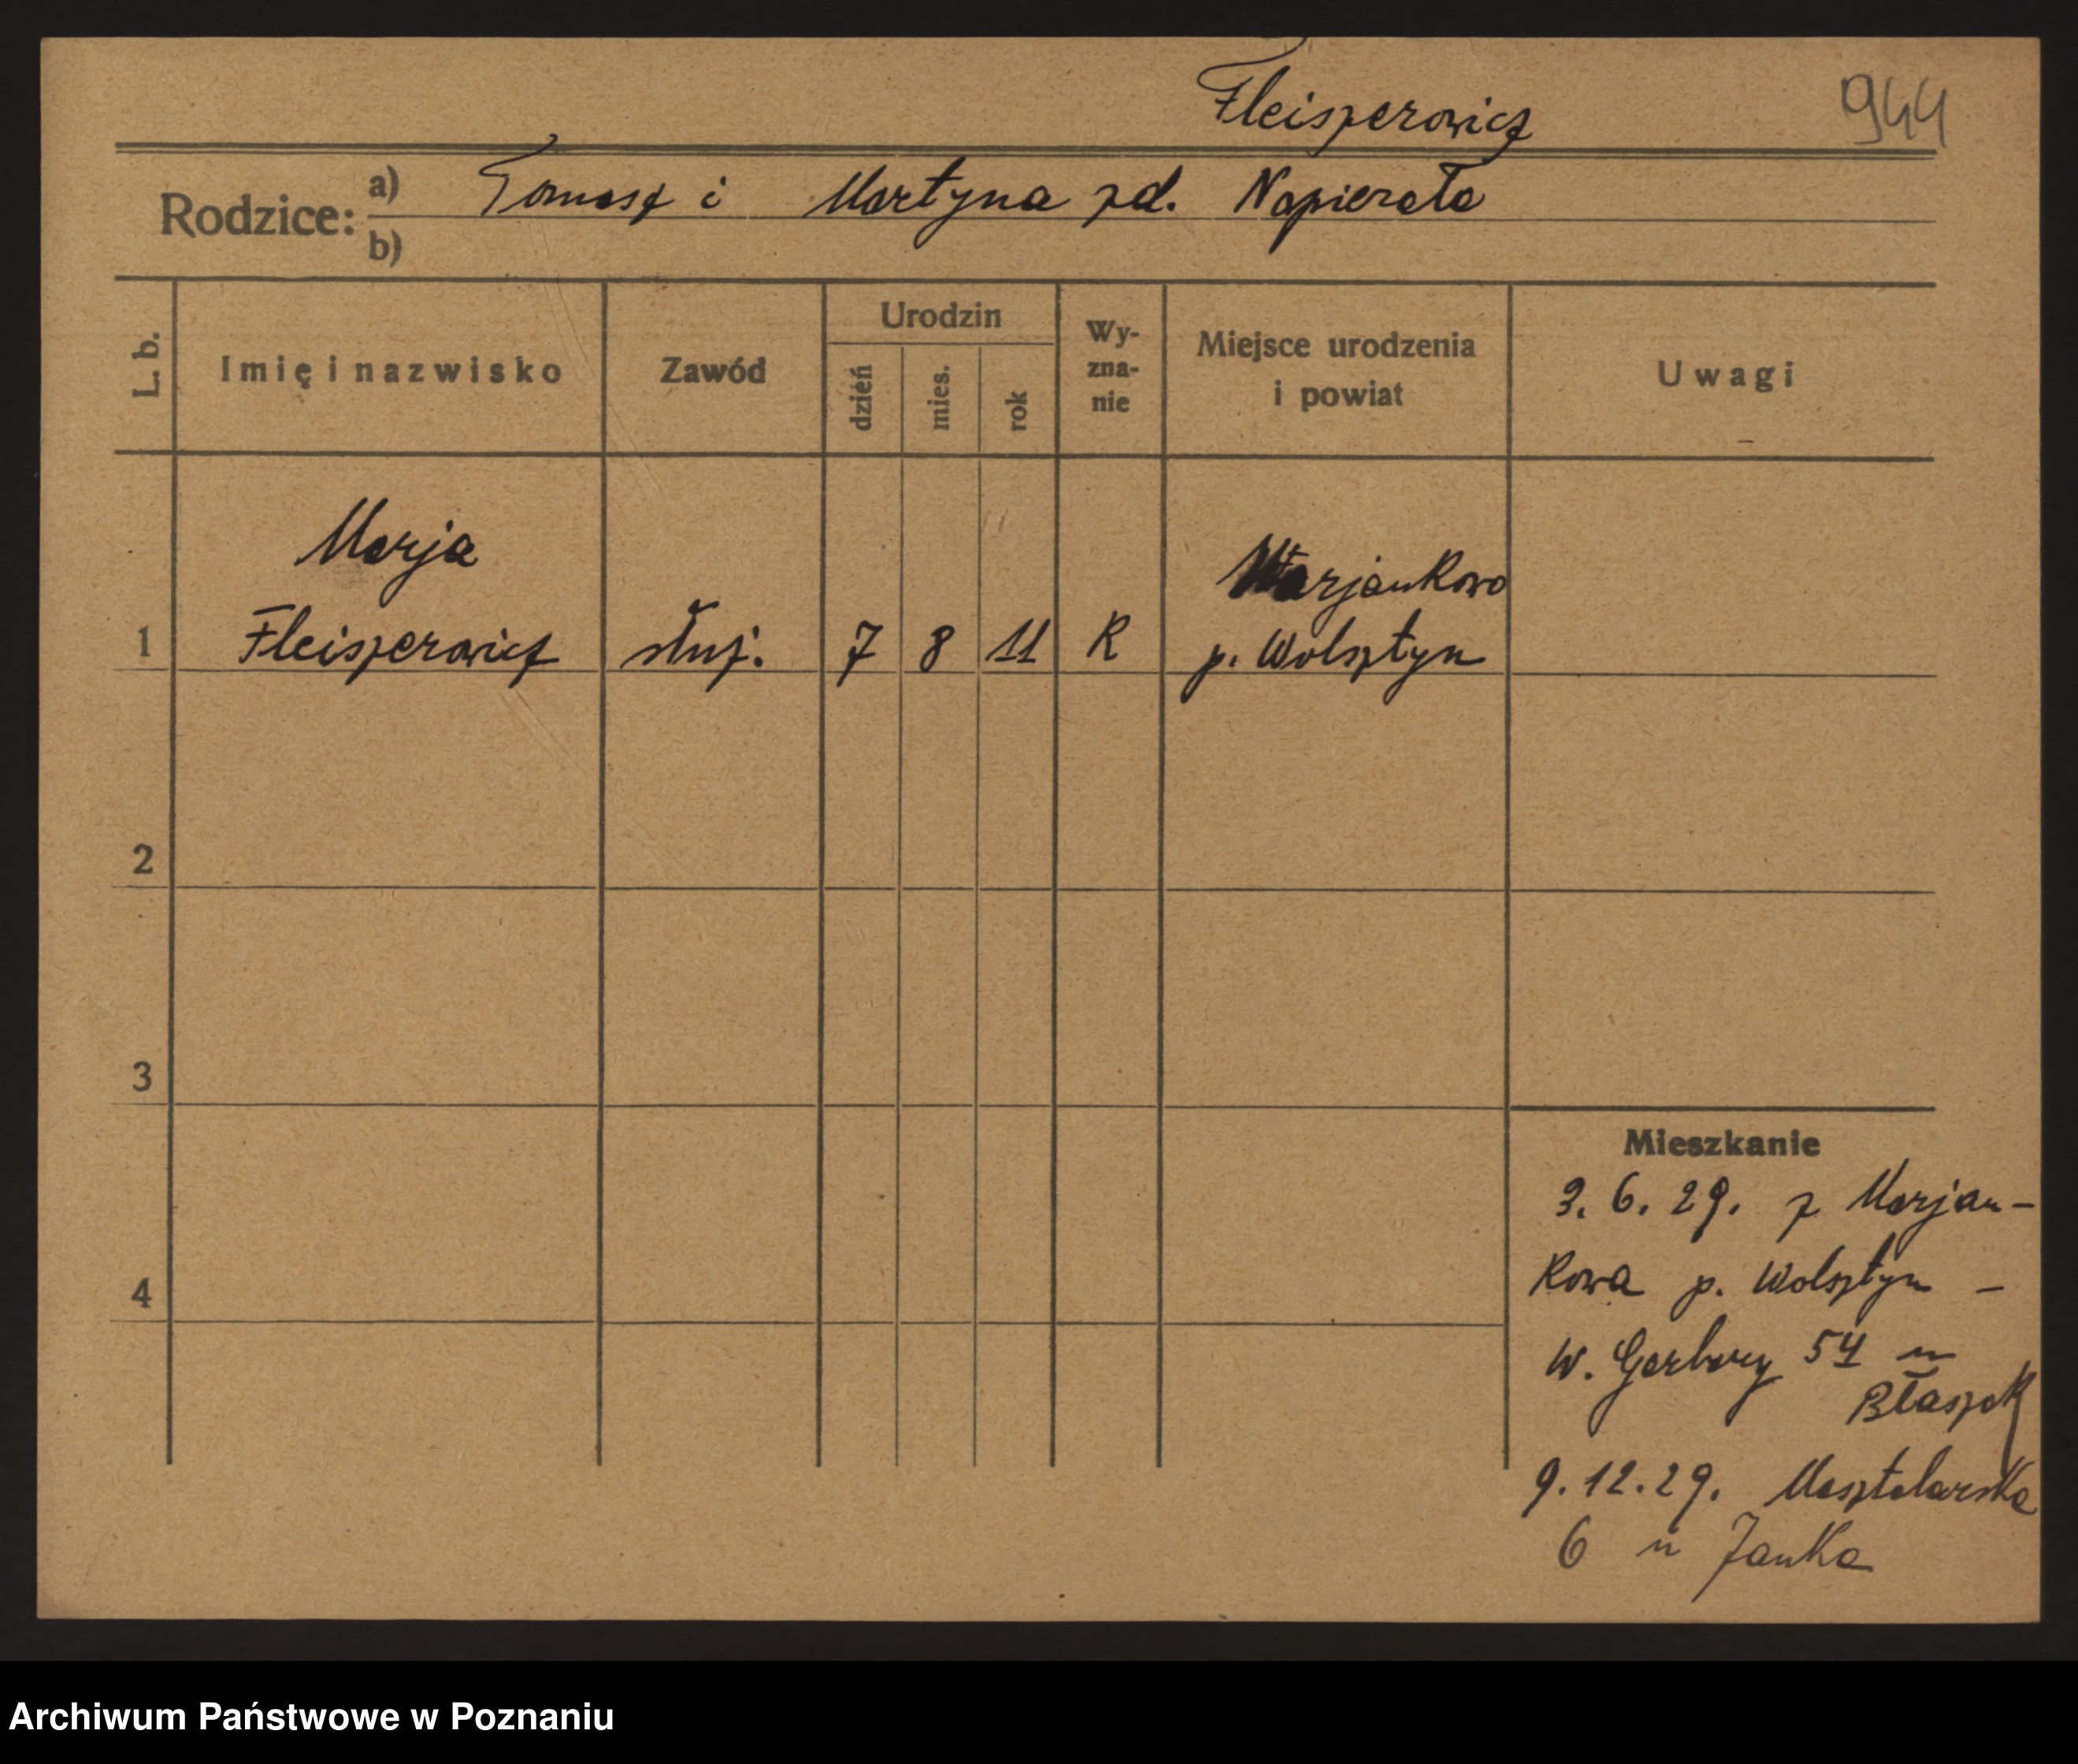 Fleiszerowicz
944
Rodzice: a) Tomasz i Martyna zd. Napierała
b)
L. b.
Imię i nazwisko
Zawód
Urodzin
dzień
mies.
rok
Wy-
zna-
nie
Miejsce urodzenia
i powiat
Uwagi
Marja
Marjankowo
1 Fleiszerowicz służ. 7 8 11 R p. Wolsztyn
2
3
4
Mieszkanie
3. 6. 29. z Marjan-
kowa p. Wolsztyn –
W. Garbary 54 u
Błaszak
9. 12. 29. Masztalarska
6 u Janka
Archiwum Państwowe w Poznaniu